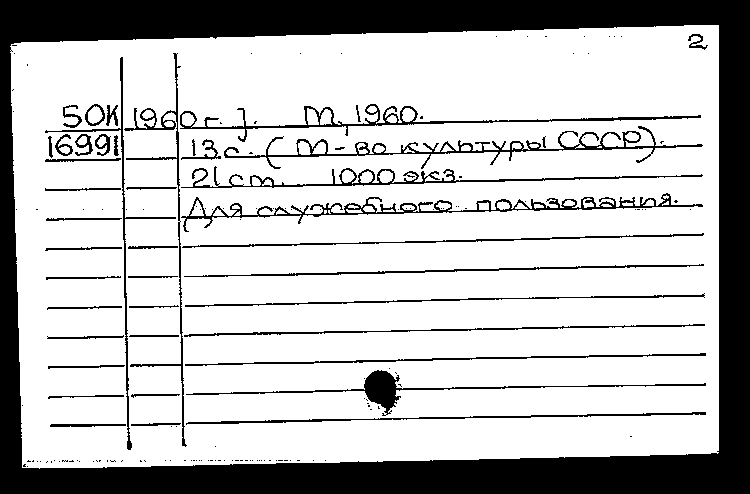 2
50К 1960 г.]. М., 1960.
16991 13 с. (М-во культуры СССР).
21 см. 1000 экз.
Для служебного пользования.